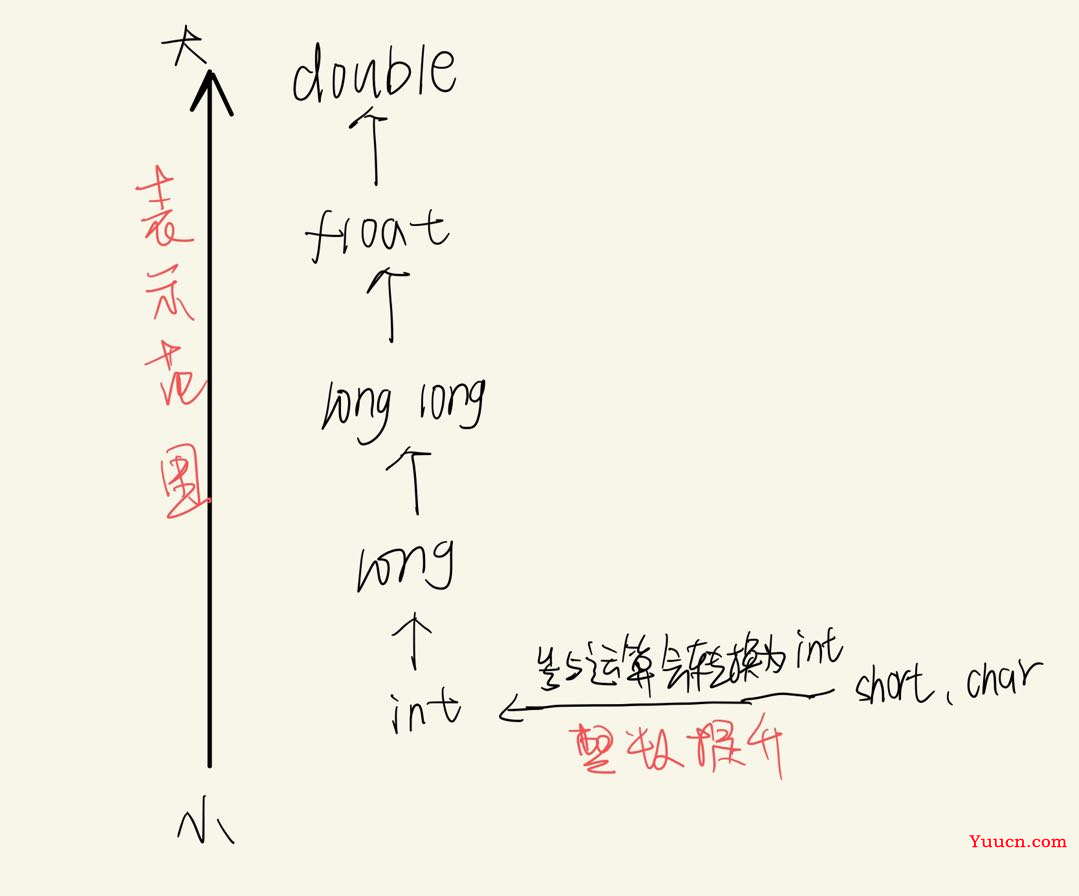 大
double
float
表示范围
long long
long
参与运算会转换为int
int
short、char
整数提升
小
Yuucn.com